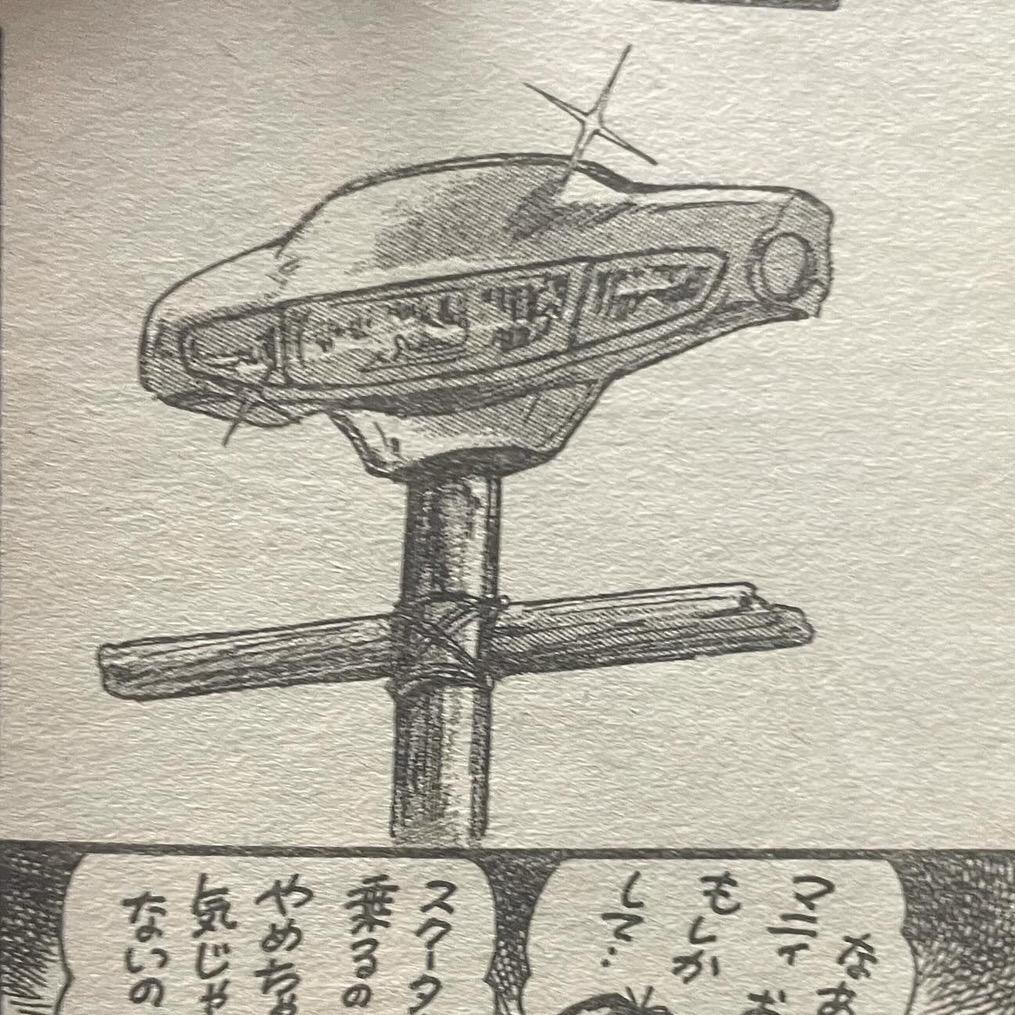 なあ
マニィ お
もしか
して…
スクータ
乗るの
やめちゃ
気じゃ
ないの